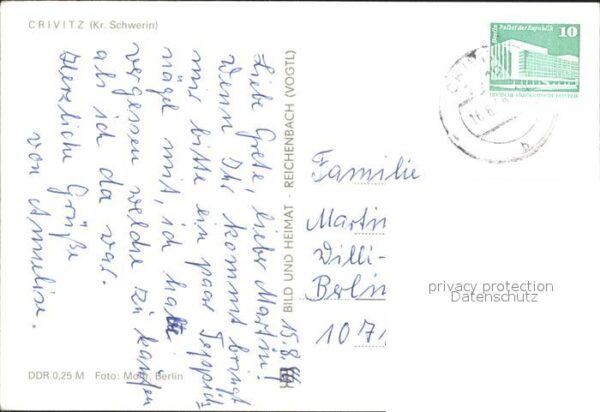 CRIVITZ (Kr. Schwerin)
15.8.86
Liebe Grete, lieber Martin!
Wenn Ihr kommt bringt
mir bitte ein paar Teppich-
nägel mit, ich habe
vergessen welche zu kaufen
als ich da war.
Herzliche Grüße
von Anneliese.
BILD UND HEIMAT · REICHENBACH (VOGTL)
DDR 0,25 M Foto: Mohr, Berlin
Berlin Palast der Republik 10
Familie
Martin
Willi-
Berlin
107
privacy protection
Datenschutz